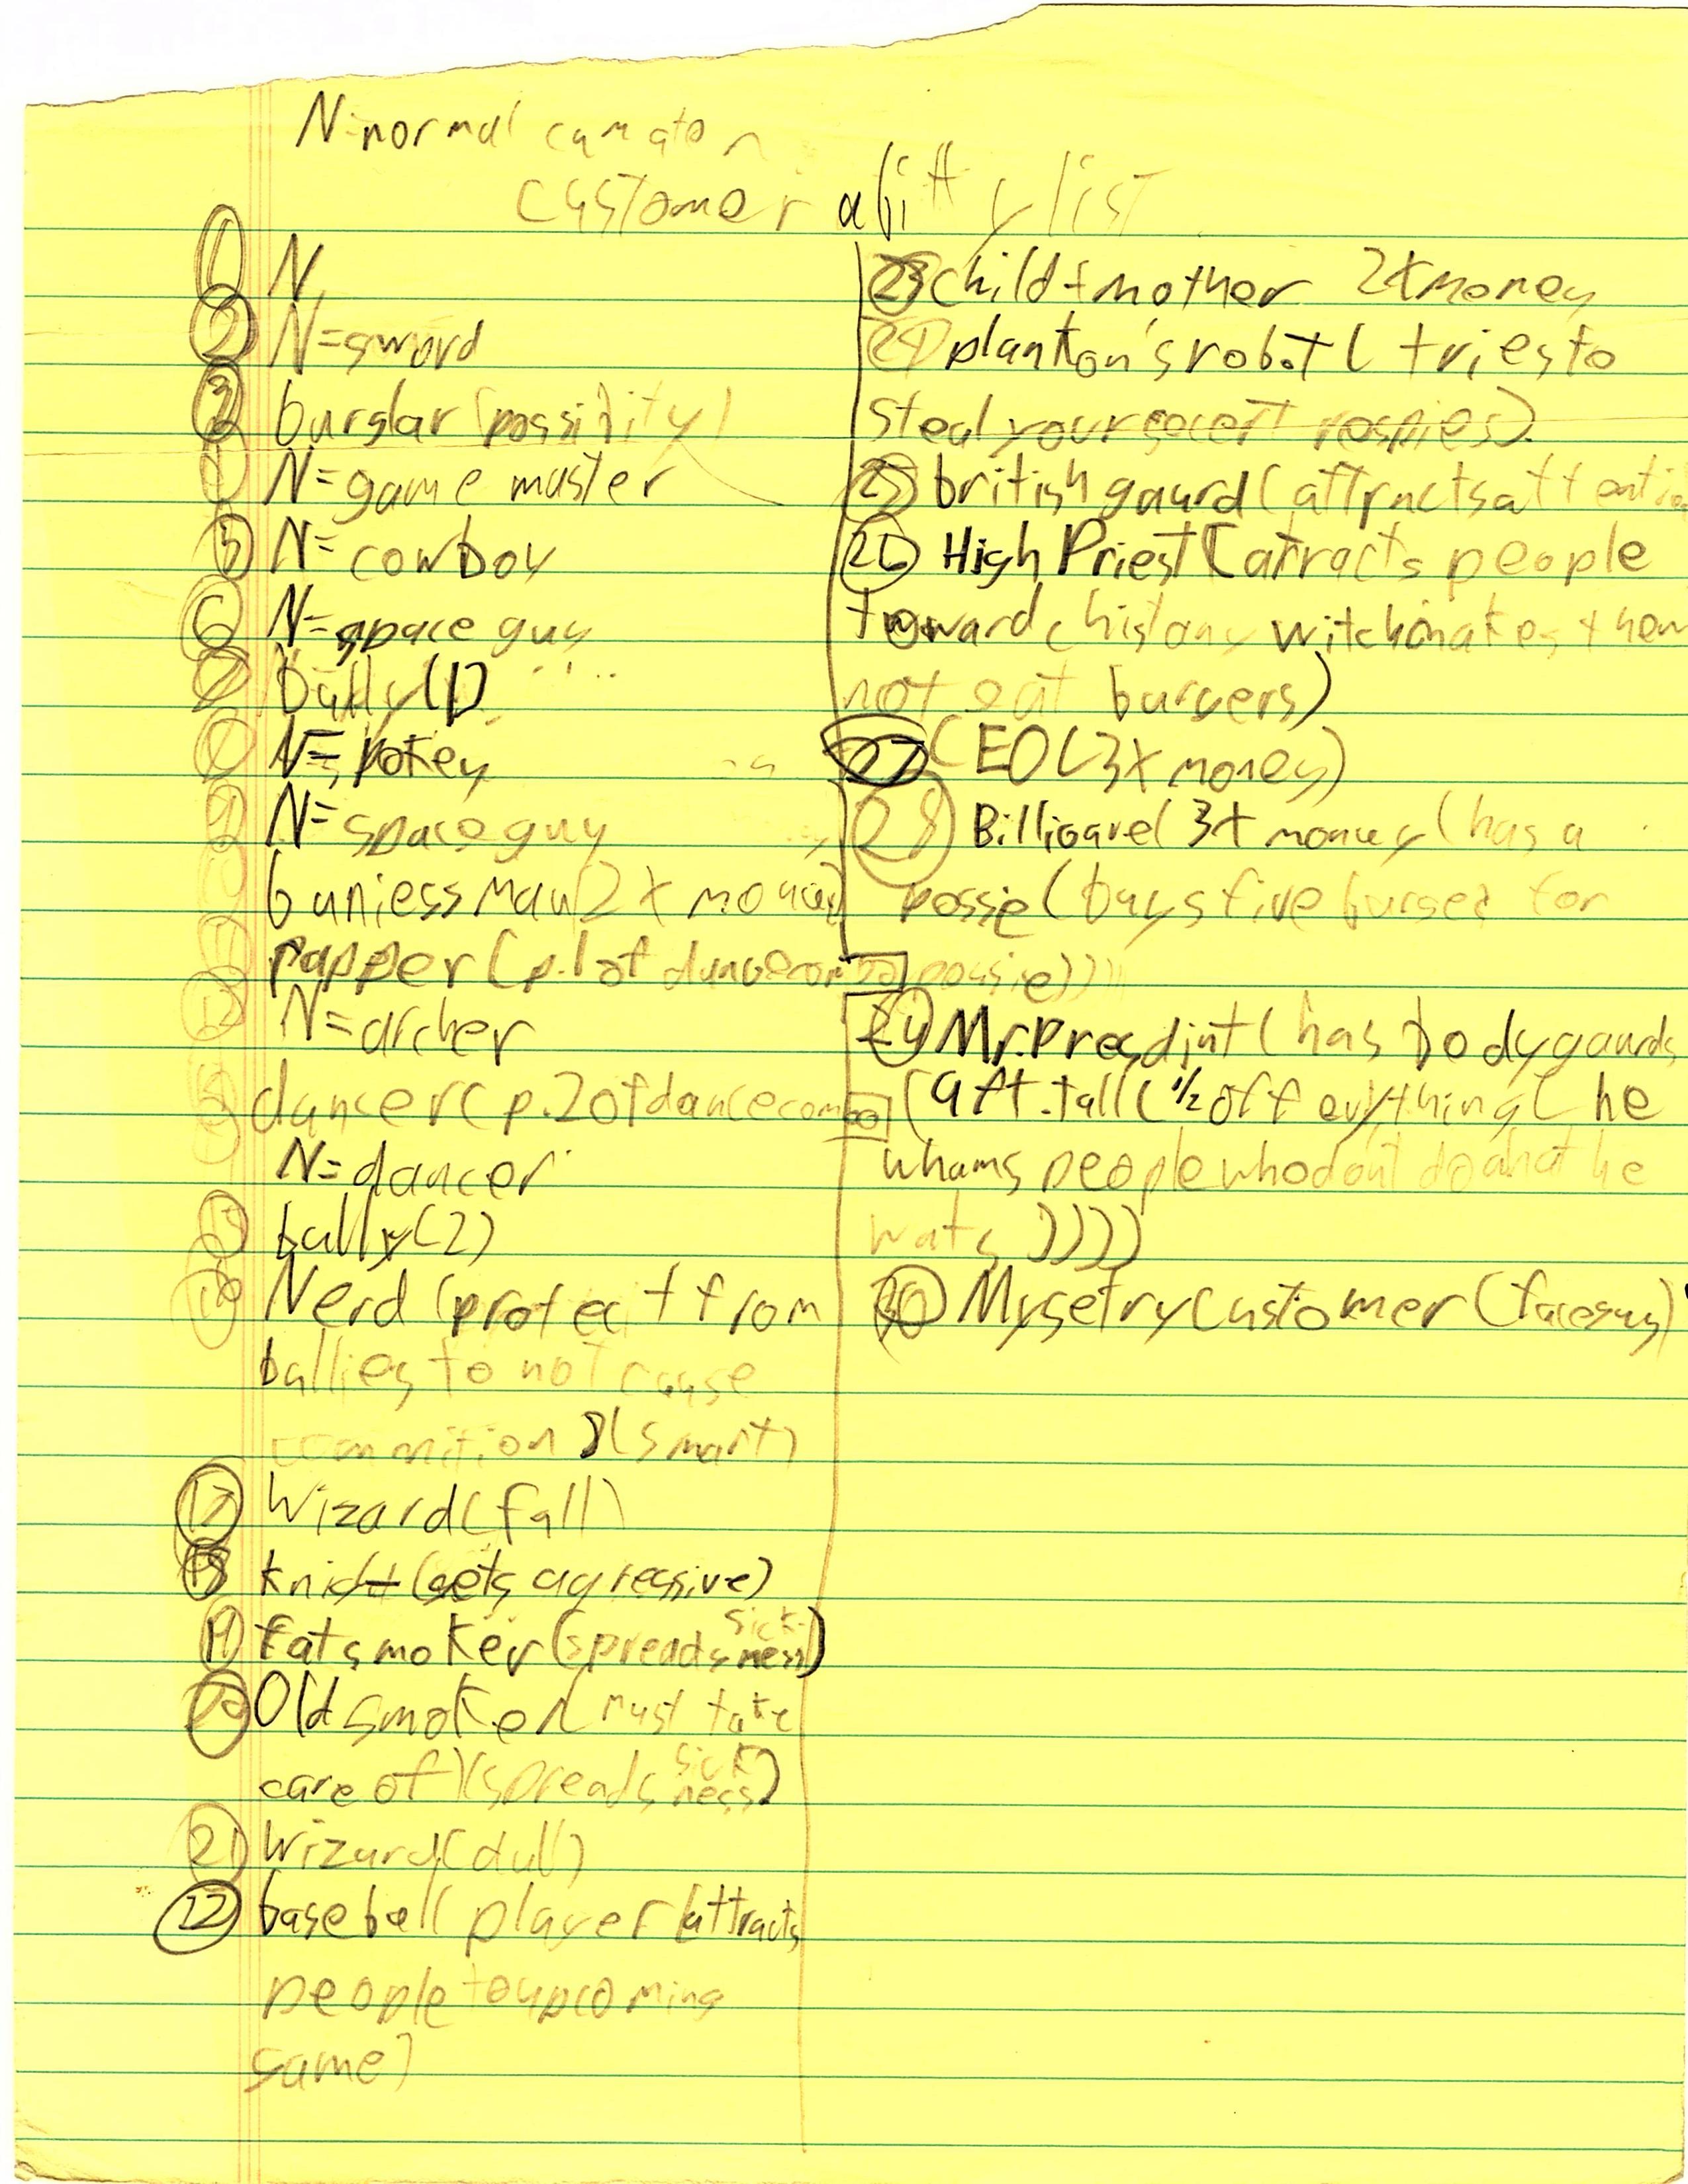 N=normal
customer ability list
① N
② N=sword
③ burglar (possibility)
④ N=game master
⑤ N=cowboy
⑥ N=space guy
⑦ bully(1)
N=pokey
⑨ N=space guy
buniess man(2x money)
⑪ rapper(p.1 of dance combo(possie))
⑫ N=archer
dancer(p.2 of dance combo)
N=dancer
⑮ bully(2)
⑯ Nerd (protect from
bullies to not cause
(smart)
⑰ Wizard(fall)
⑱ knight (gets agressive)
⑲ fat smoker(spreads sickness)
⑳ Old smoker(must take
care of)(spreads sickness)
㉑ wizard(dull)
⑫ baseball player(attracts
people to upcoming
game)
㉓ child+mother 2x money
㉔ plankton's robot( tries to
steal your secert respies)
㉕ british gaurd(attracts attentio
㉖ High Priest(atracts people
toward witch makes them
not eat burgers)
㉗ CEO(3x money)
㉘ Billioare(3x money(has a
possie(buys five burger for
㉙ Mr. Presdint(has bodygaurds
(9ft.tall(½ off evrything(he
whams people who dont do what he
wats))))
㉚ Mysetry customer(facesus)